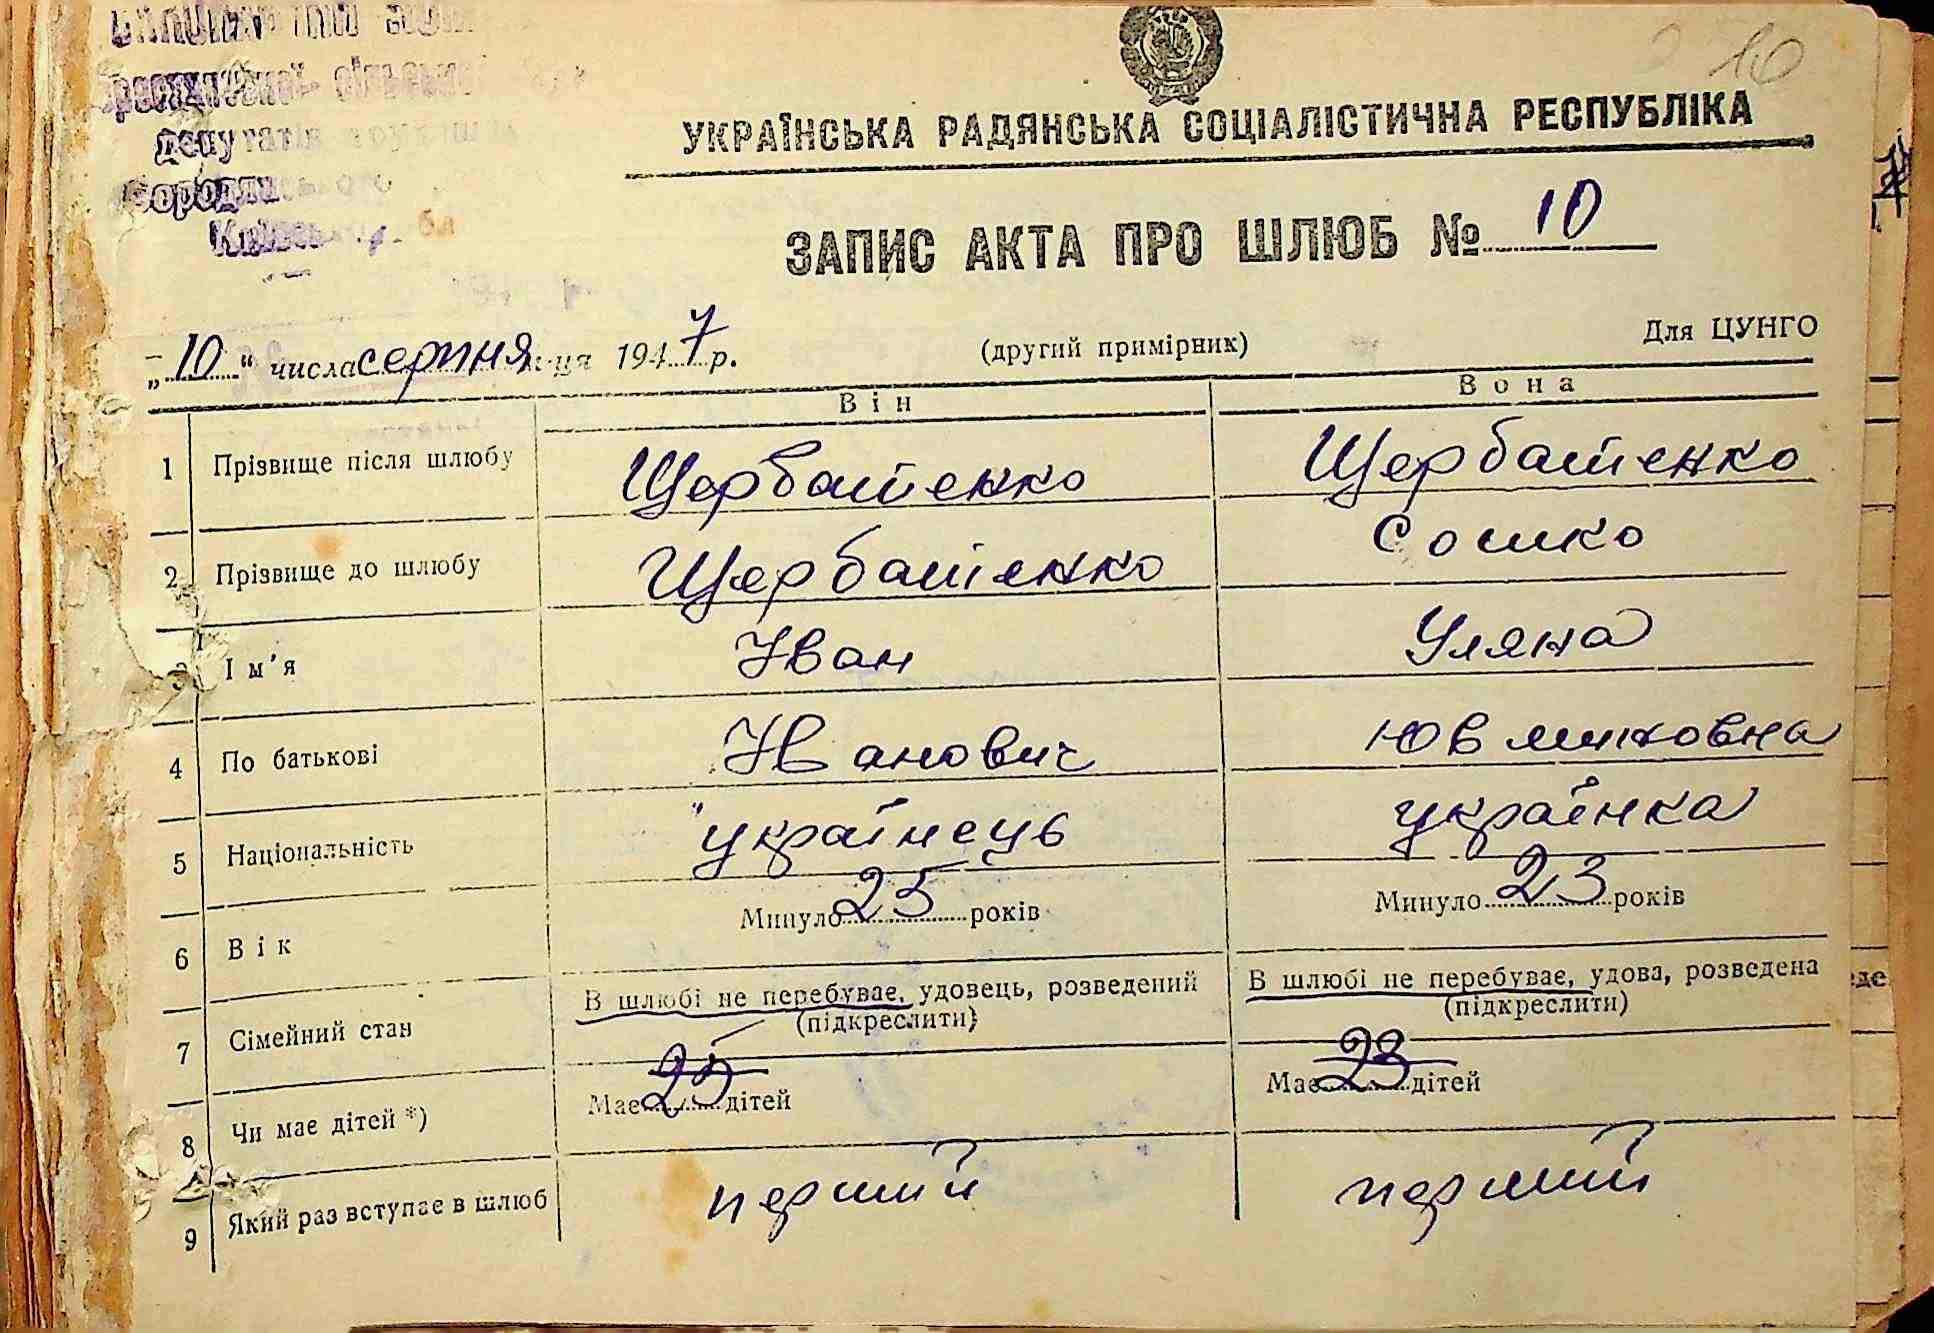 10
депутатів
УКРАЇНСЬКА РАДЯНСЬКА СОЦІАЛІСТИЧНА РЕСПУБЛІКА
ЗАПИС АКТА ПРО ШЛЮБ № 10
„10“ числа серпня м-ця 1947 р. (другий примірник) Для ЦУНГО
Він Вона
1 Прізвище після шлюбу Щербатенко Щербатенко
2 Прізвище до шлюбу Щербатенко Сошко
3 Ім'я Іван Уляна
4 По батькові Іванович Ювминовна
5 Національність українець українка
6 Вік Минуло 25 років Минуло 23 років
7 Сімейний стан В шлюбі не перебуває, удовець, розведений В шлюбі не перебуває, удова, розведена
(підкреслити) (підкреслити)
8 Чи має дітей *) Має 25 дітей Має 23 дітей
9 Який раз вступає в шлюб перший перший